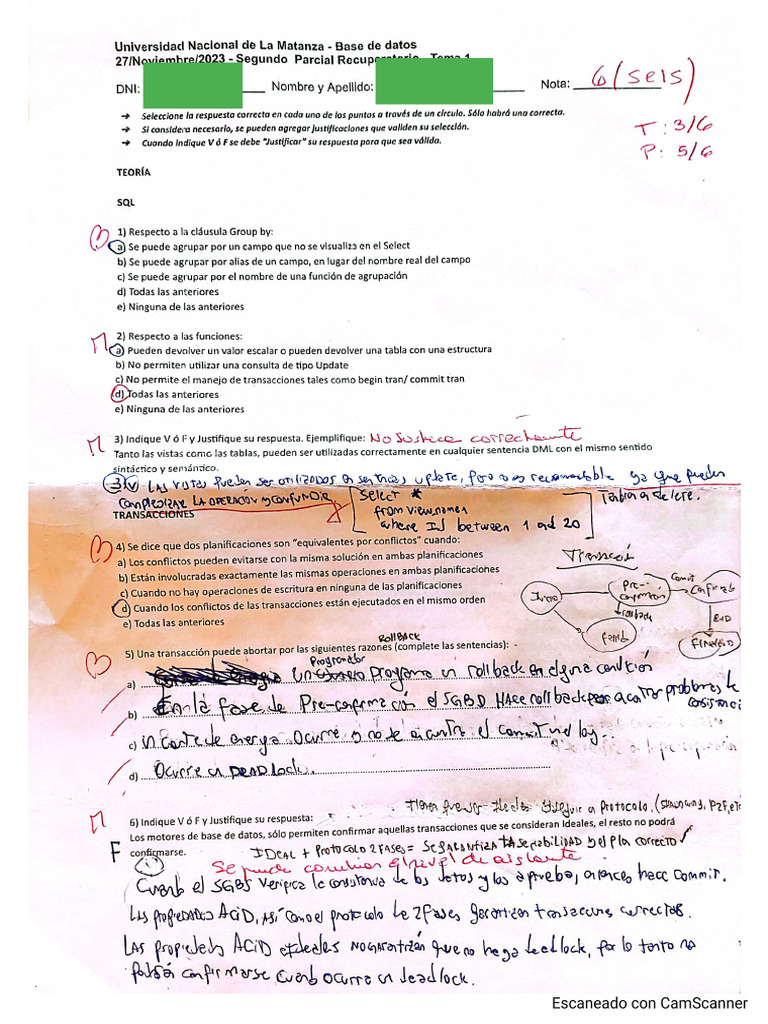 Universidad Nacional de La Matanza - Base de datos
27/Noviembre/2023 - Segundo Parcial Recuperatorio - Tema 1
DNI: Nombre y Apellido: Nota: 6 (seis)
→ Seleccione la respuesta correcta en cada uno de los puntos a través de un círculo. Sólo habrá una correcta.
→ Si considera necesario, se pueden agregar justificaciones que validen su selección.
→ Cuando indique V ó F se debe "Justificar" su respuesta para que sea válida.
T: 3/6
P: 5/6
TEORÍA
SQL
1) Respecto a la cláusula Group by:
a) Se puede agrupar por un campo que no se visualiza en el Select
b) Se puede agrupar por alias de un campo, en lugar del nombre real del campo
c) Se puede agrupar por el nombre de una función de agrupación
d) Todas las anteriores
e) Ninguna de las anteriores
2) Respecto a las funciones:
a) Pueden devolver un valor escalar o pueden devolver una tabla con una estructura
b) No permiten utilizar una consulta de tipo Update
c) No permite el manejo de transacciones tales como begin tran/ commit tran
d) Todas las anteriores
e) Ninguna de las anteriores
3) Indique V ó F y Justifique su respuesta. Ejemplifique: No Justifica correctamente
Tanto las vistas como las tablas, pueden ser utilizadas correctamente en cualquier sentencia DML con el mismo sentido
sintáctico y semántico.
3) V Las vistas pueden ser utilizadas en sentencias update, pero no es recomendable ya que pueden
complejizar la operación y confundir
Select *
from viewnames
where Id between 1 and 20
Tabla a delete.
TRANSACCIONES
4) Se dice que dos planificaciones son "equivalentes por conflictos" cuando:
a) Los conflictos pueden evitarse con la misma solución en ambas planificaciones
b) Están involucradas exactamente las mismas operaciones en ambas planificaciones
c) Cuando no hay operaciones de escritura en ninguna de las planificaciones
d) Cuando los conflictos de las transacciones están ejecutados en el mismo orden
e) Todas las anteriores
Transacción
Inicio
Pre-confirmación
Commit
Confirmado
rollback
END
Finalizado
RollBack
5) Una transacción puede abortar por las siguientes razones (complete las sentencias):
a) Un Programador programa un rollback en alguna condición
b) En la fase de Pre-confirmación el SGBD Hace rollback para evitar problemas de consistencia
c) Un corte de energía ocurre y no se encuentra el commit en el log.
d) Ocurre un DEADLOCK.
6) Indique V ó F y Justifique su respuesta:
Los motores de base de datos, sólo permiten confirmar aquellas transacciones que se consideran Ideales, el resto no podrá
confirmarse.
F
IDEAL + Protocolo 2 fases = Se garantiza la seriabilidad y el plan correcto
Se puede cambiar el nivel de aislante
Cuando el SGBD verifica la consistencia de los datos y los aprueba, entonces hace commit.
Las propiedades ACID, así como el protocolo de 2 fases garantizan transacciones correctas.
Las propiedades ACID e ideales no garantizan que no haya deadlock, por lo tanto no
podrán confirmarse cuando ocurra un deadlock.
Escaneado con CamScanner